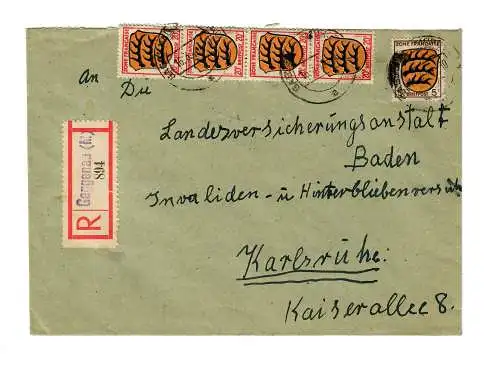 ZONE FRANÇAISE ZONE FRANÇAISE ZONE FRANÇAISE ZONE FRANÇAISE ZONE FRANÇAISE
20 20 20 20
An
Die
Landesversicherungsanstalt
Baden
Invaliden- u Hinterbliebenversich
Karlsruhe:
Kaiserallee 8.
R
Gaggenau
894